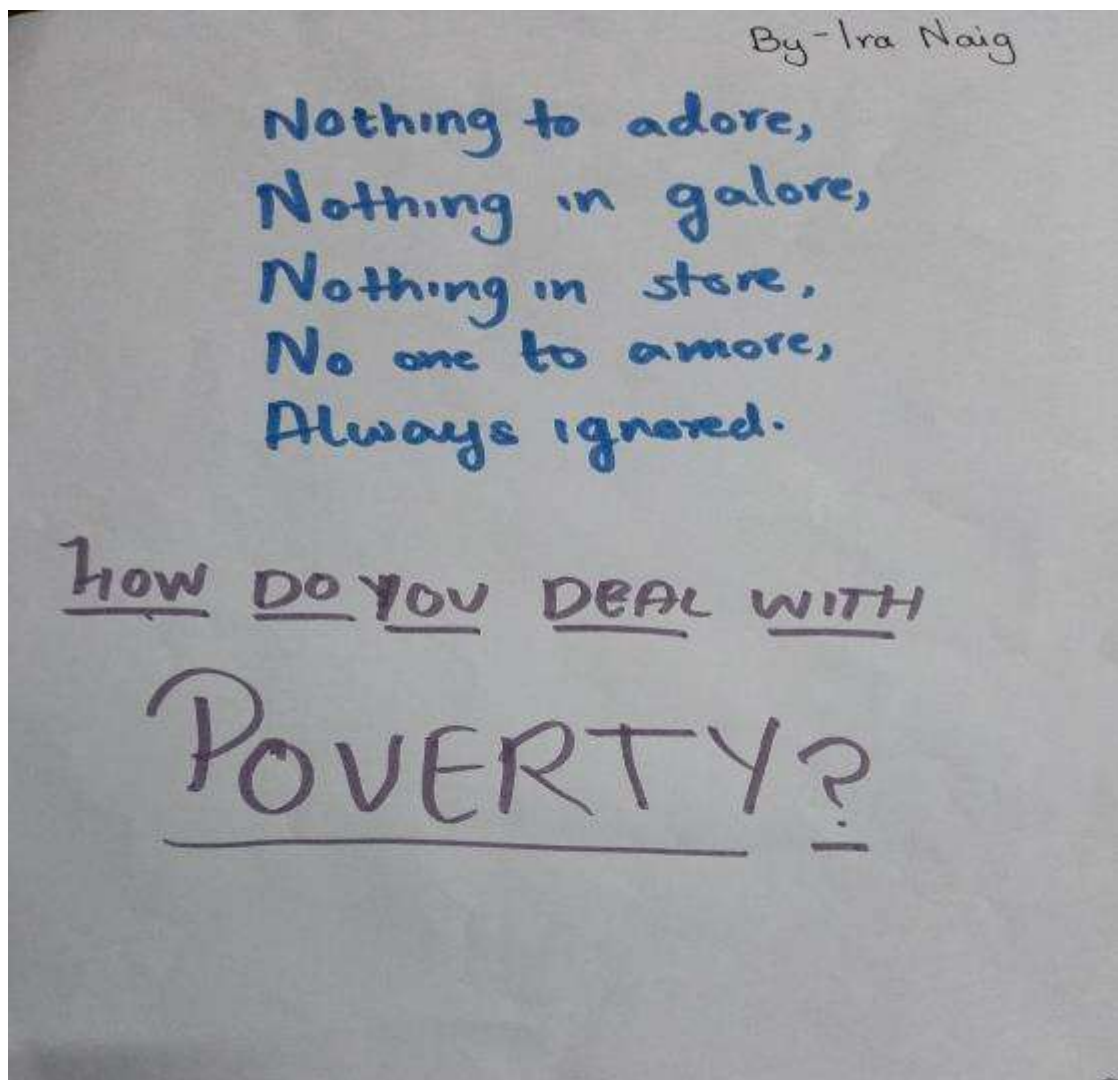 By-Ira Naig
Nothing to adore,
Nothing in galore,
Nothing in store,
No one to amore,
Always ignored.
HOW DO YOU DEAL WITH
POVERTY?